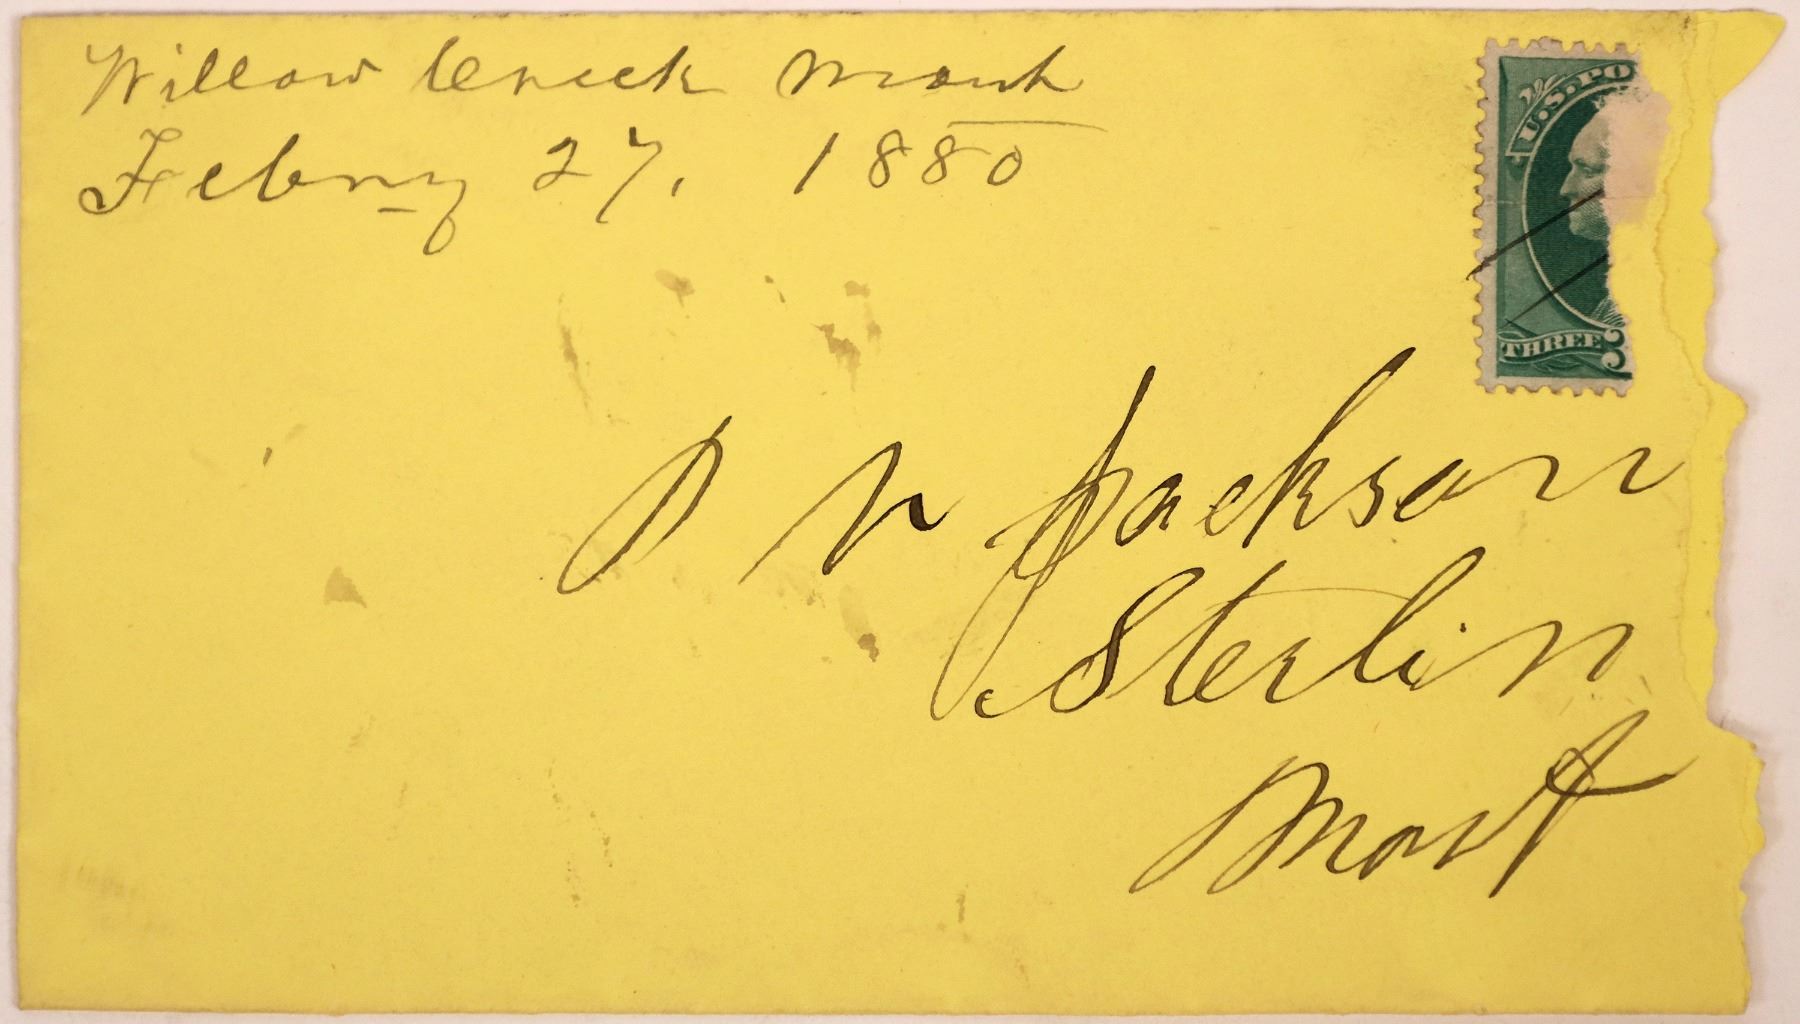 Willow Creek Mont
Febry 27, 1880
U.S. PO
THREE 3
D N Jackson
Sterlin
Mont